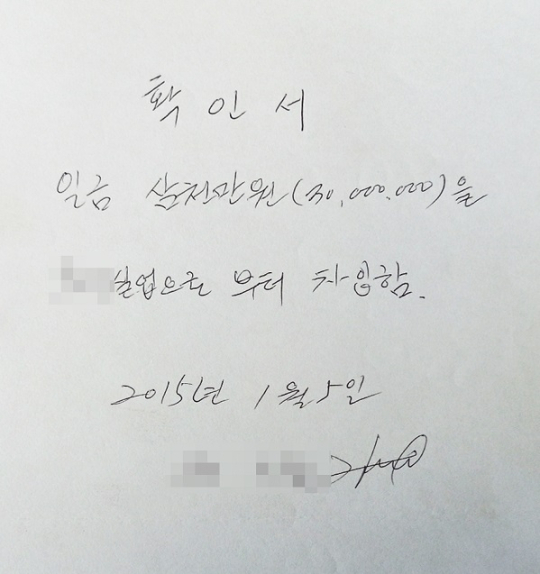 확인서
일금 삼천만원(30,000.000)을
실업으로 부터 차입함.
2015년 1월 5일